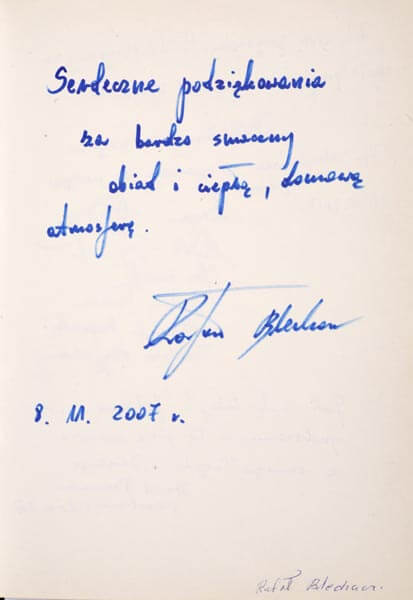 Serdeczne podziękowania
za bardzo smaczny
obiad i ciepłą, domową
atmosferę.
Rafał Blechacz
8. 11. 2007 r.
Rafał Blechacz